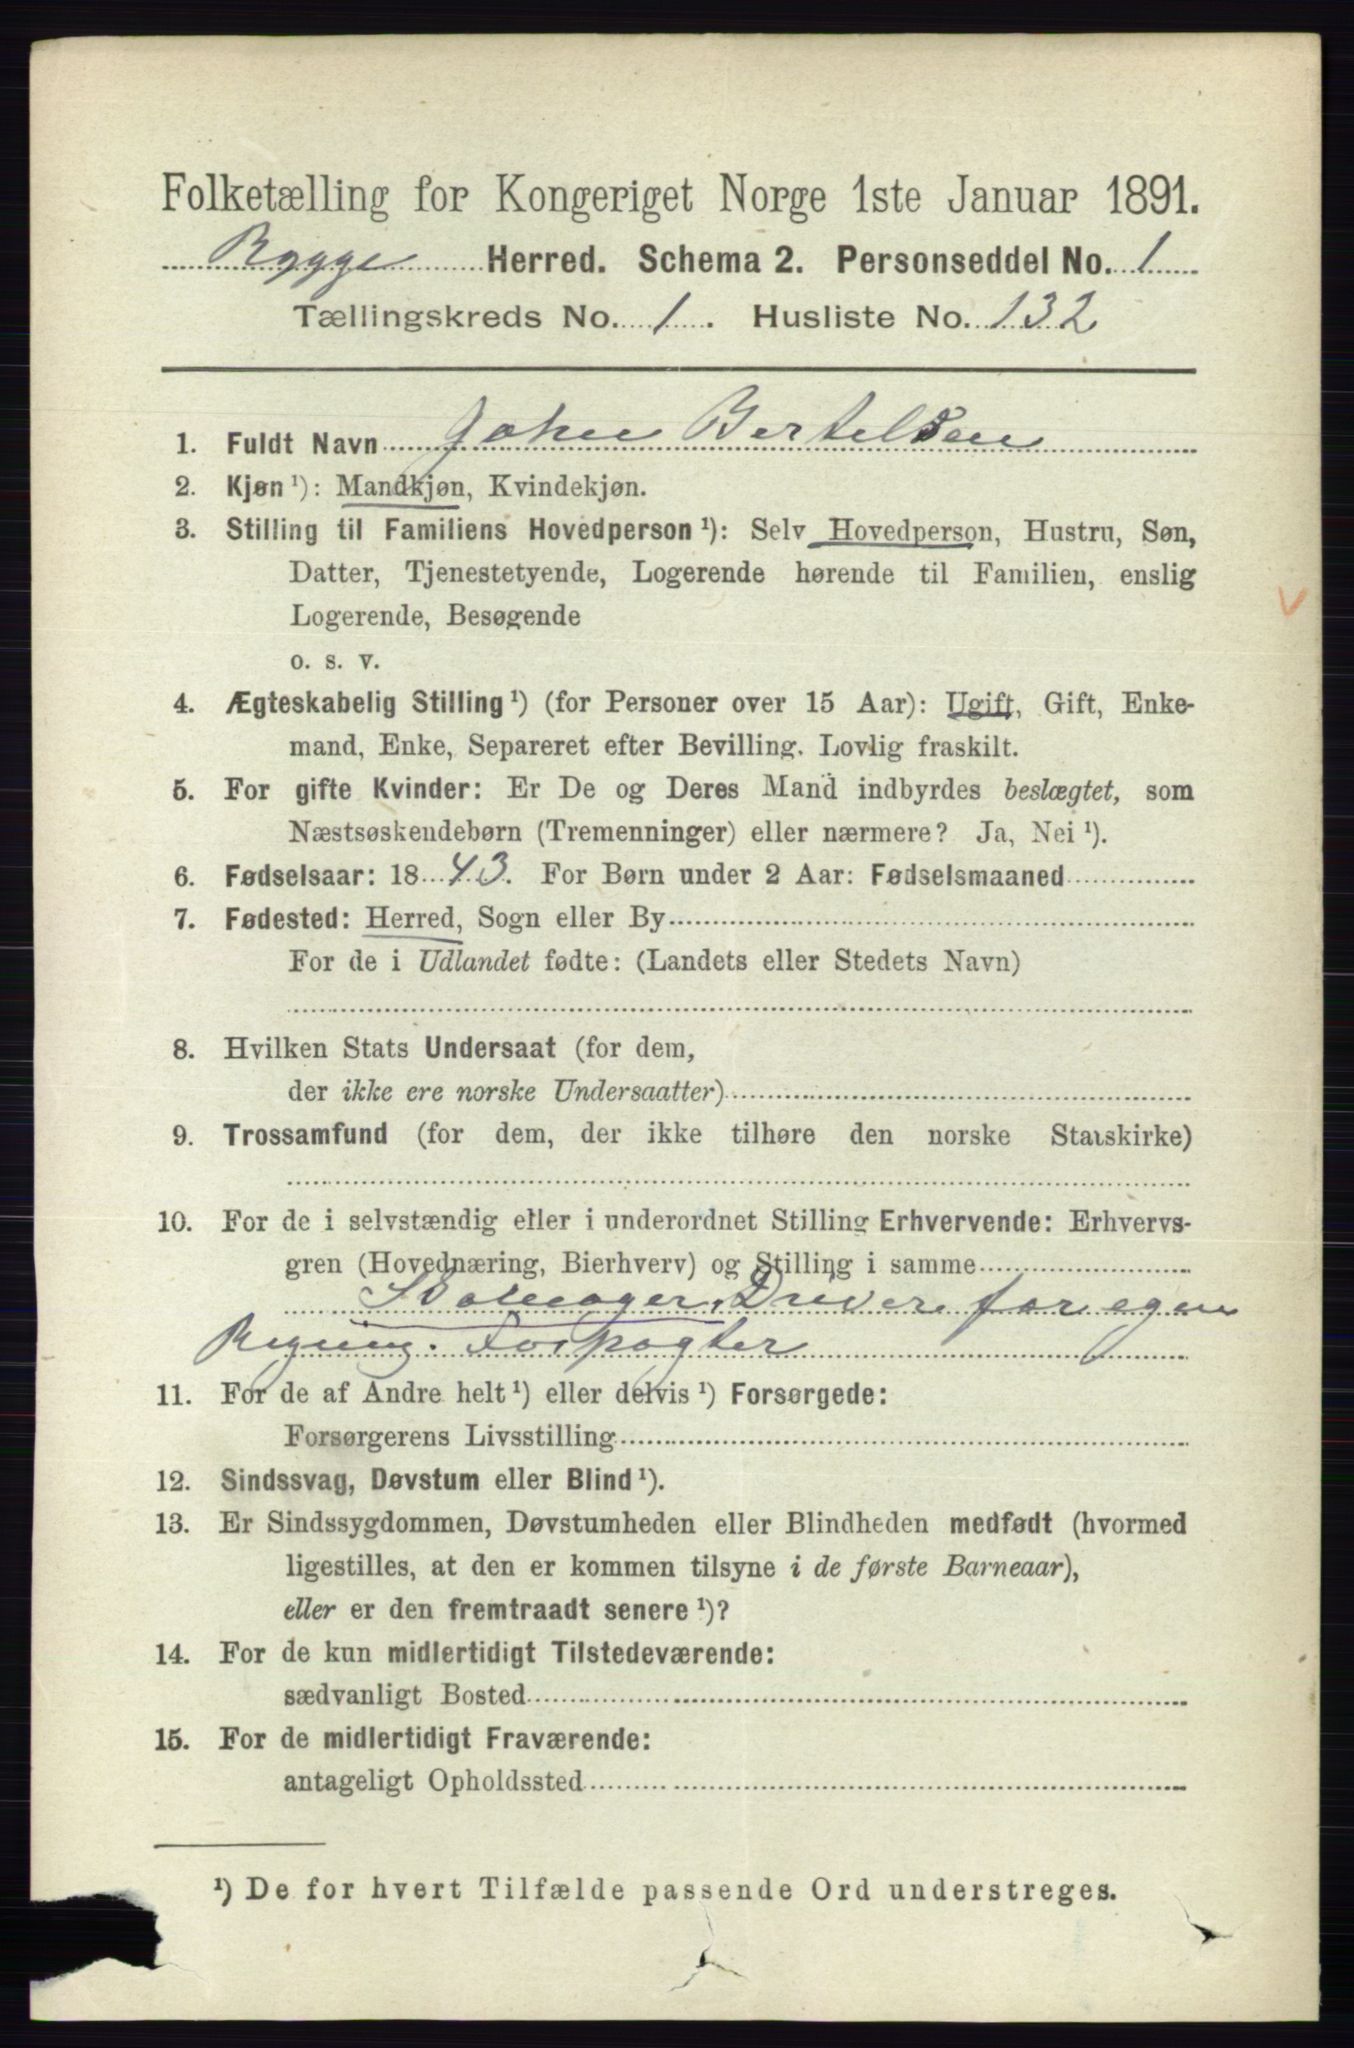 Folketælling for Kongeriget Norge 1ste Januar 1891.
Rygge Herred. Schema 2. Personseddel No. 1
Tællingskreds No. 1. Husliste No. 132
1. Fuldt Navn Johen Bertelsen
2. Kjøn ¹): Mandkjøn, Kvindekjøn.
3. Stilling til Familiens Hovedperson ¹): Selv Hovedperson, Hustru, Søn,
Datter, Tjenestetyende, Logerende hørende til Familien, enslig
Logerende, Besøgende
o. s. v.
4. Ægteskabelig Stilling ¹) (for Personer over 15 Aar): Ugift, Gift, Enke-
mand, Enke, Separeret efter Bevilling. Lovlig fraskilt.
5. For gifte Kvinder: Er De og Deres Mand indbyrdes beslægtet, som
Næstsøskendebørn (Tremenninger) eller nærmere? Ja, Nei ¹).
6. Fødselsaar: 1843. For Børn under 2 Aar: Fødselsmaaned
7. Fødested: Herred, Sogn eller By
For de i Udlandet fødte: (Landets eller Stedets Navn)
8. Hvilken Stats Undersaat (for dem,
der ikke ere norske Undersaatter)
9. Trossamfund (for dem, der ikke tilhøre den norske Statskirke)
10. For de i selvstændig eller i underordnet Stilling Erhvervende: Erhvervs-
gren (Hovednæring, Bierhverv) og Stilling i samme
Skomager, Driver for egen
Regning. Forpagter
11. For de af Andre helt ¹) eller delvis ¹) Forsørgede:
Forsørgerens Livsstilling
12. Sindssvag, Døvstum eller Blind ¹).
13. Er Sindssygdommen, Døvstumheden eller Blindheden medfødt (hvormed
ligestilles, at den er kommen tilsyne i de første Barneaar),
eller er den fremtraadt senere ¹)?
14. For de kun midlertidigt Tilstedeværende:
sædvanligt Bosted
15. For de midlertidigt Fraværende:
antageligt Opholdssted
¹) De for hvert Tilfælde passende Ord understreges.